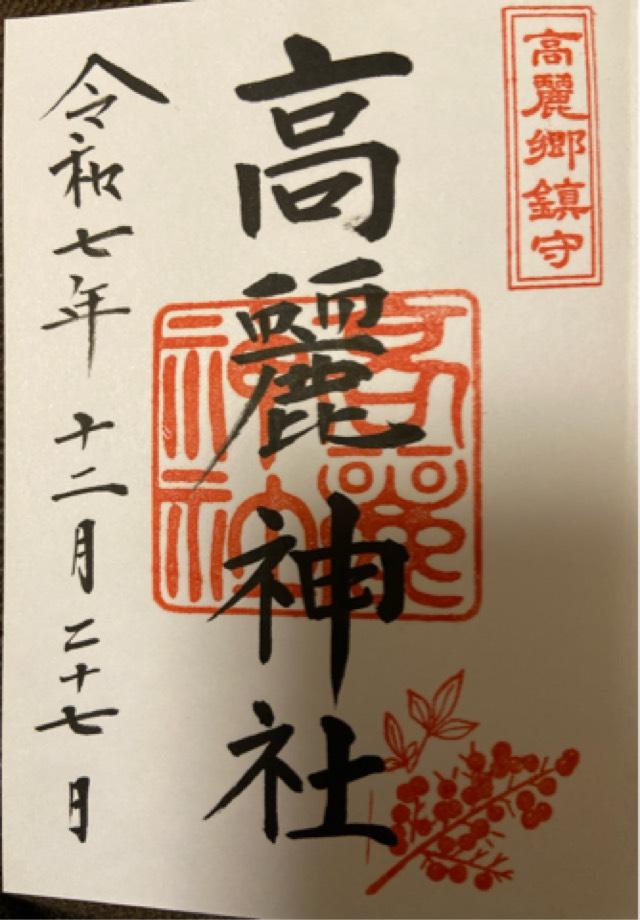 高麗郷鎮守
高麗神社
令和七年十二月二十七日